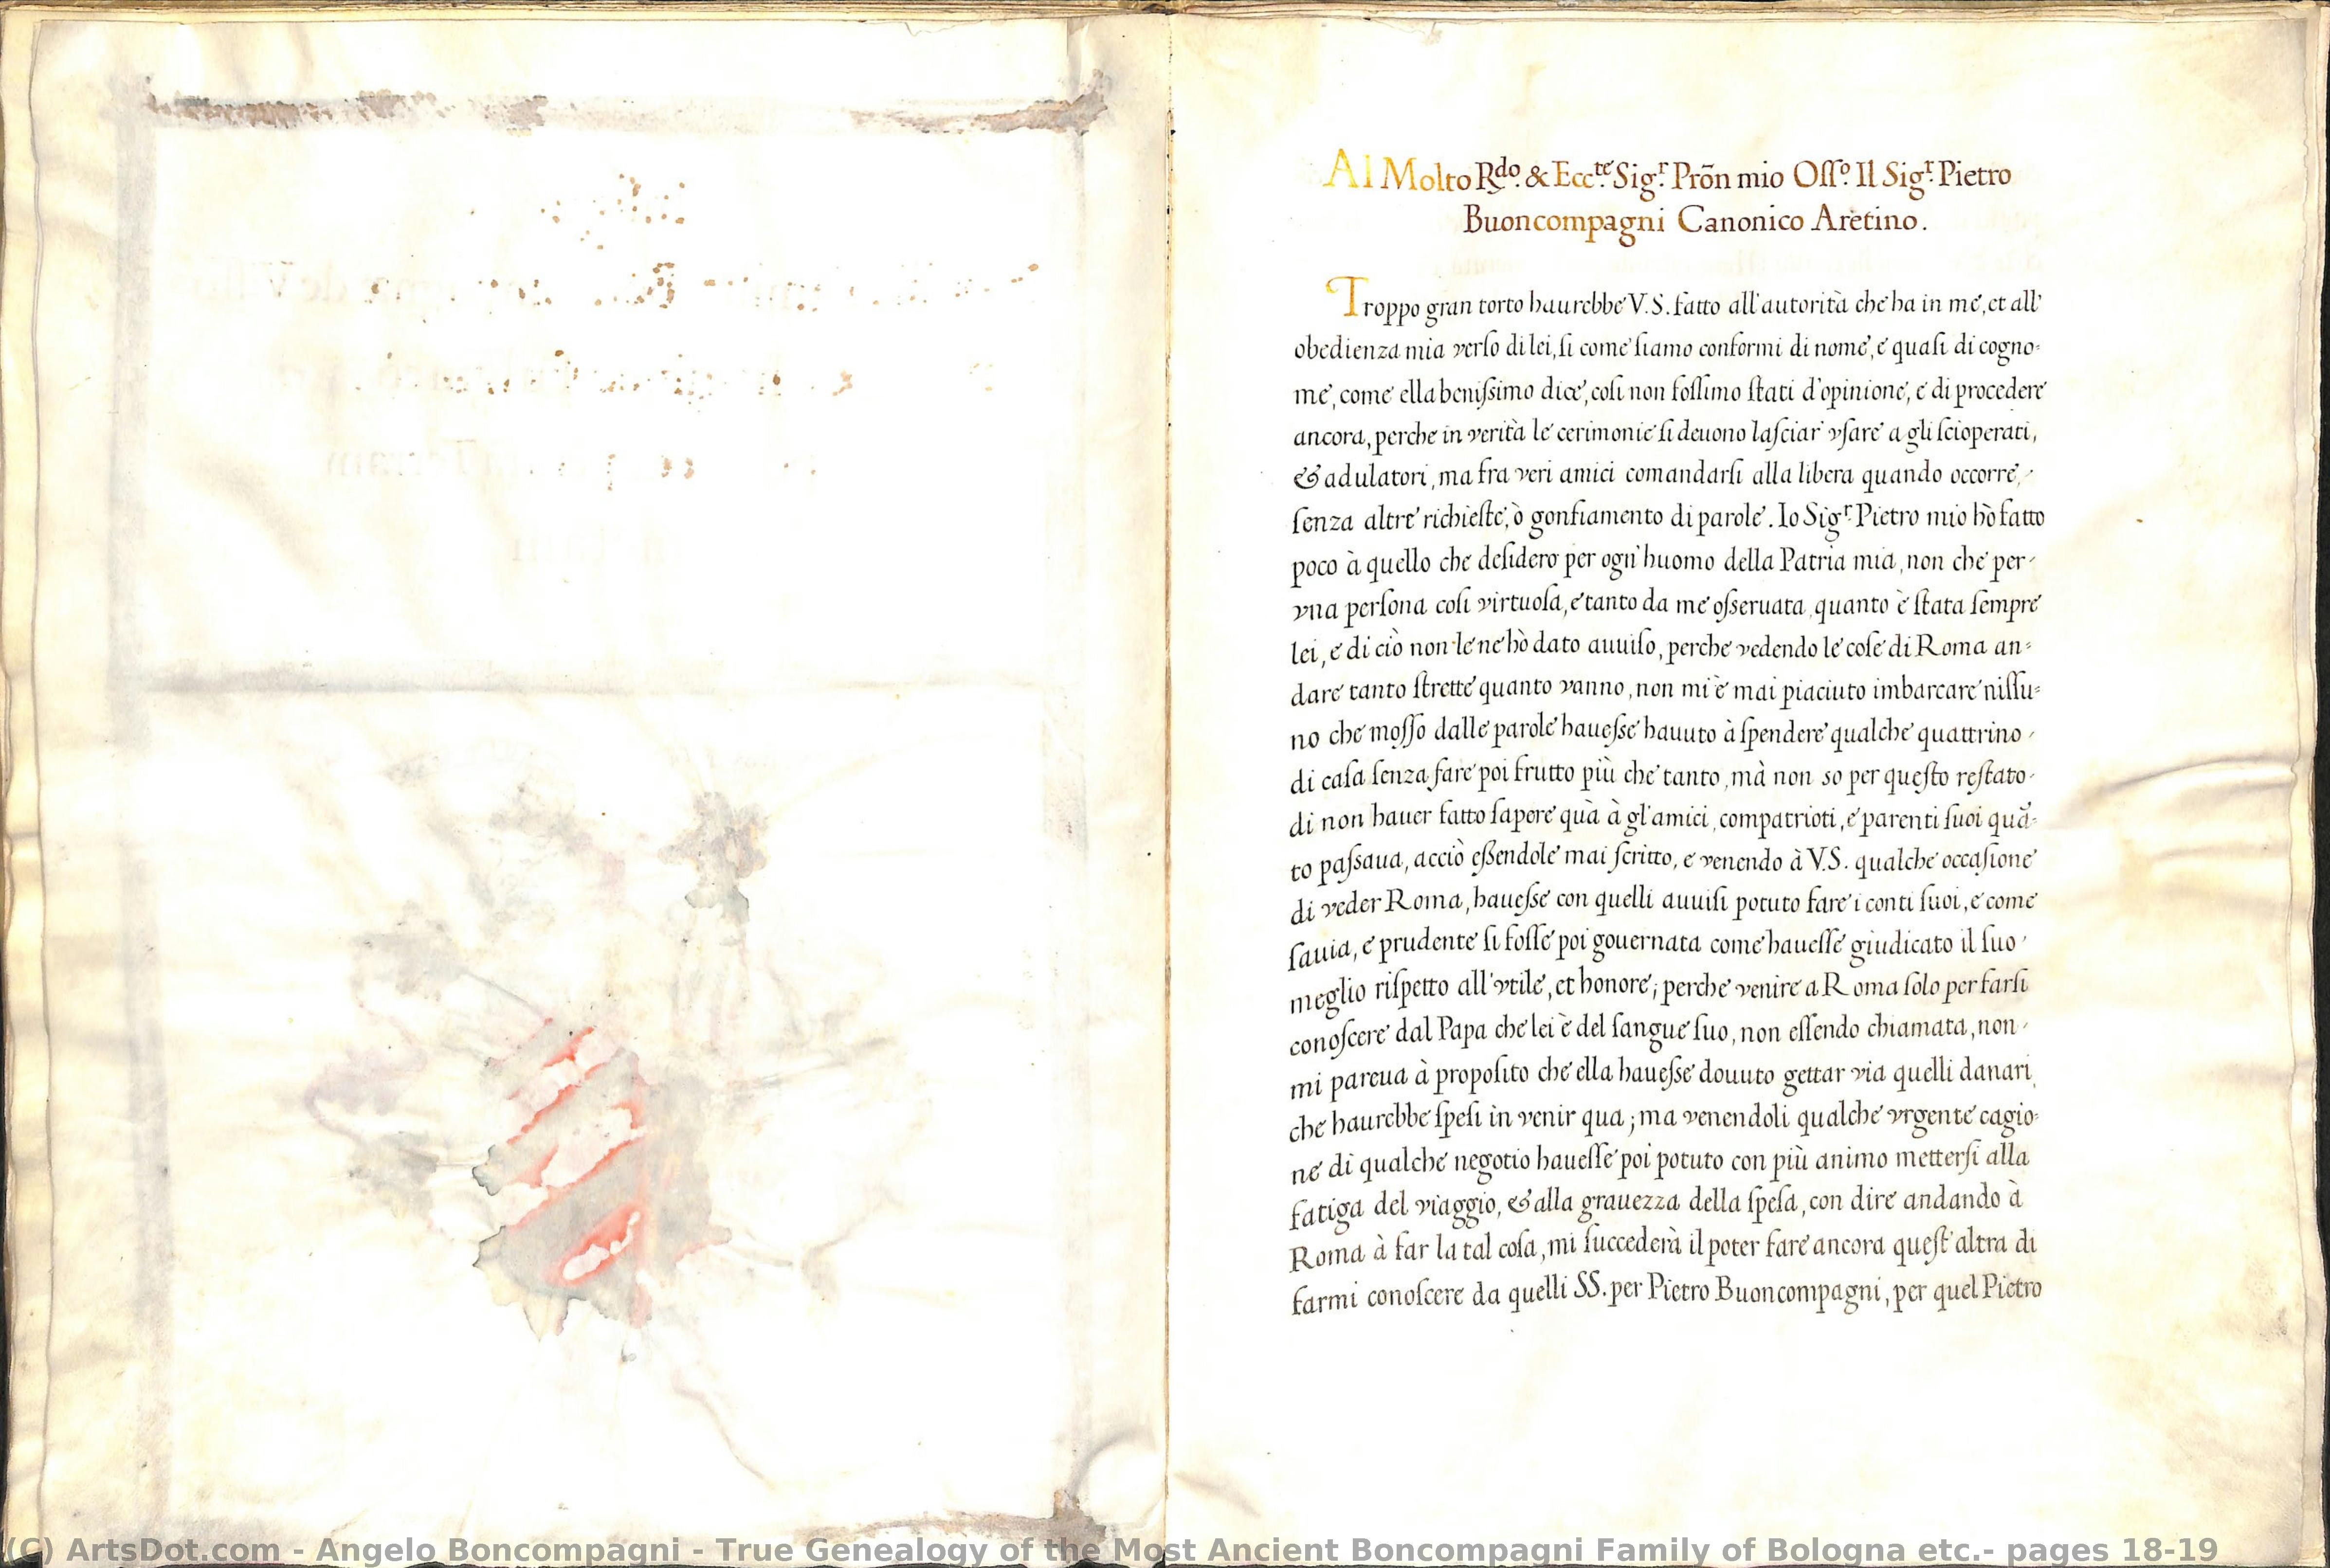 Al Molto Rdo. & Eccte. Sigr. Prõn mio Oſſo. Il Sigr. Pietro
Buoncompagni Canonico Aretino.
Troppo gran torto haurebbe V.S. fatto all'autorità che ha in me, et all'
obedienza mia verſo di lei, ſi come ſiamo conformi di nome, e quaſi di cogno=
me, come ella beniſsimo dice, coſi non foſſimo ſtati d'opinione, e di procedere
ancora, perche in verità le cerimonie ſi deuono laſciar' vſare a gli ſcioperati,
& adulatori, ma fra veri amici comandarſi alla libera quando occorre,
ſenza altre richieſte, ò gonfiamento di parole. Io Sigr. Pietro mio hò fatto
poco à quello che deſidero per ogn'huomo della Patria mia, non che per
vna perſona coſi virtuoſa, e tanto da me oſseruata, quanto è ſtata ſempre
lei, e di ciò non le ne hò dato auuiſo, perche vedendo le coſe di Roma an=
dare tanto ſtrette quanto vanno, non mi è mai piaciuto imbarcare niſſu=
no che moſſo dalle parole haueſse hauuto à ſpendere qualche quattrino
di caſa ſenza fare poi frutto più che tanto, mà non so per queſto reſtato
di non hauer fatto ſapere quà à gl'amici, compatrioti, e parenti ſuoi quã=
to paſsaua, acciò eſsendole mai ſcritto, e venendo à V.S. qualche occaſione
di veder Roma, haueſse con quelli auuiſi potuto fare i conti ſuoi, e come
ſauia, e prudente ſi foſſe poi gouernata come haueſſe giudicato il ſuo
meglio riſpetto all'vtile, et honore; perche venire a Roma ſolo per farſi
conoſcere dal Papa che lei è del ſangue ſuo, non eſſendo chiamata, non
mi pareua à propoſito che ella haueſse douuto gettar via quelli danari
che haurebbe ſpeſi in venir qua; ma venendoli qualche vrgente cagio=
ne di qualche negotio haueſſe poi potuto con più animo metterſi alla
fatiga del viaggio, & alla grauezza della ſpeſa, con dire andando à
Roma à far la tal coſa, mi ſuccederà il poter fare ancora queſt'altra di
farmi conoſcere da quelli SS. per Pietro Buoncompagni, per quel Pietro
(C) ArtsDot.com - Angelo Boncompagni - True Genealogy of the Most Ancient Boncompagni Family of Bologna etc.- pages 18-19